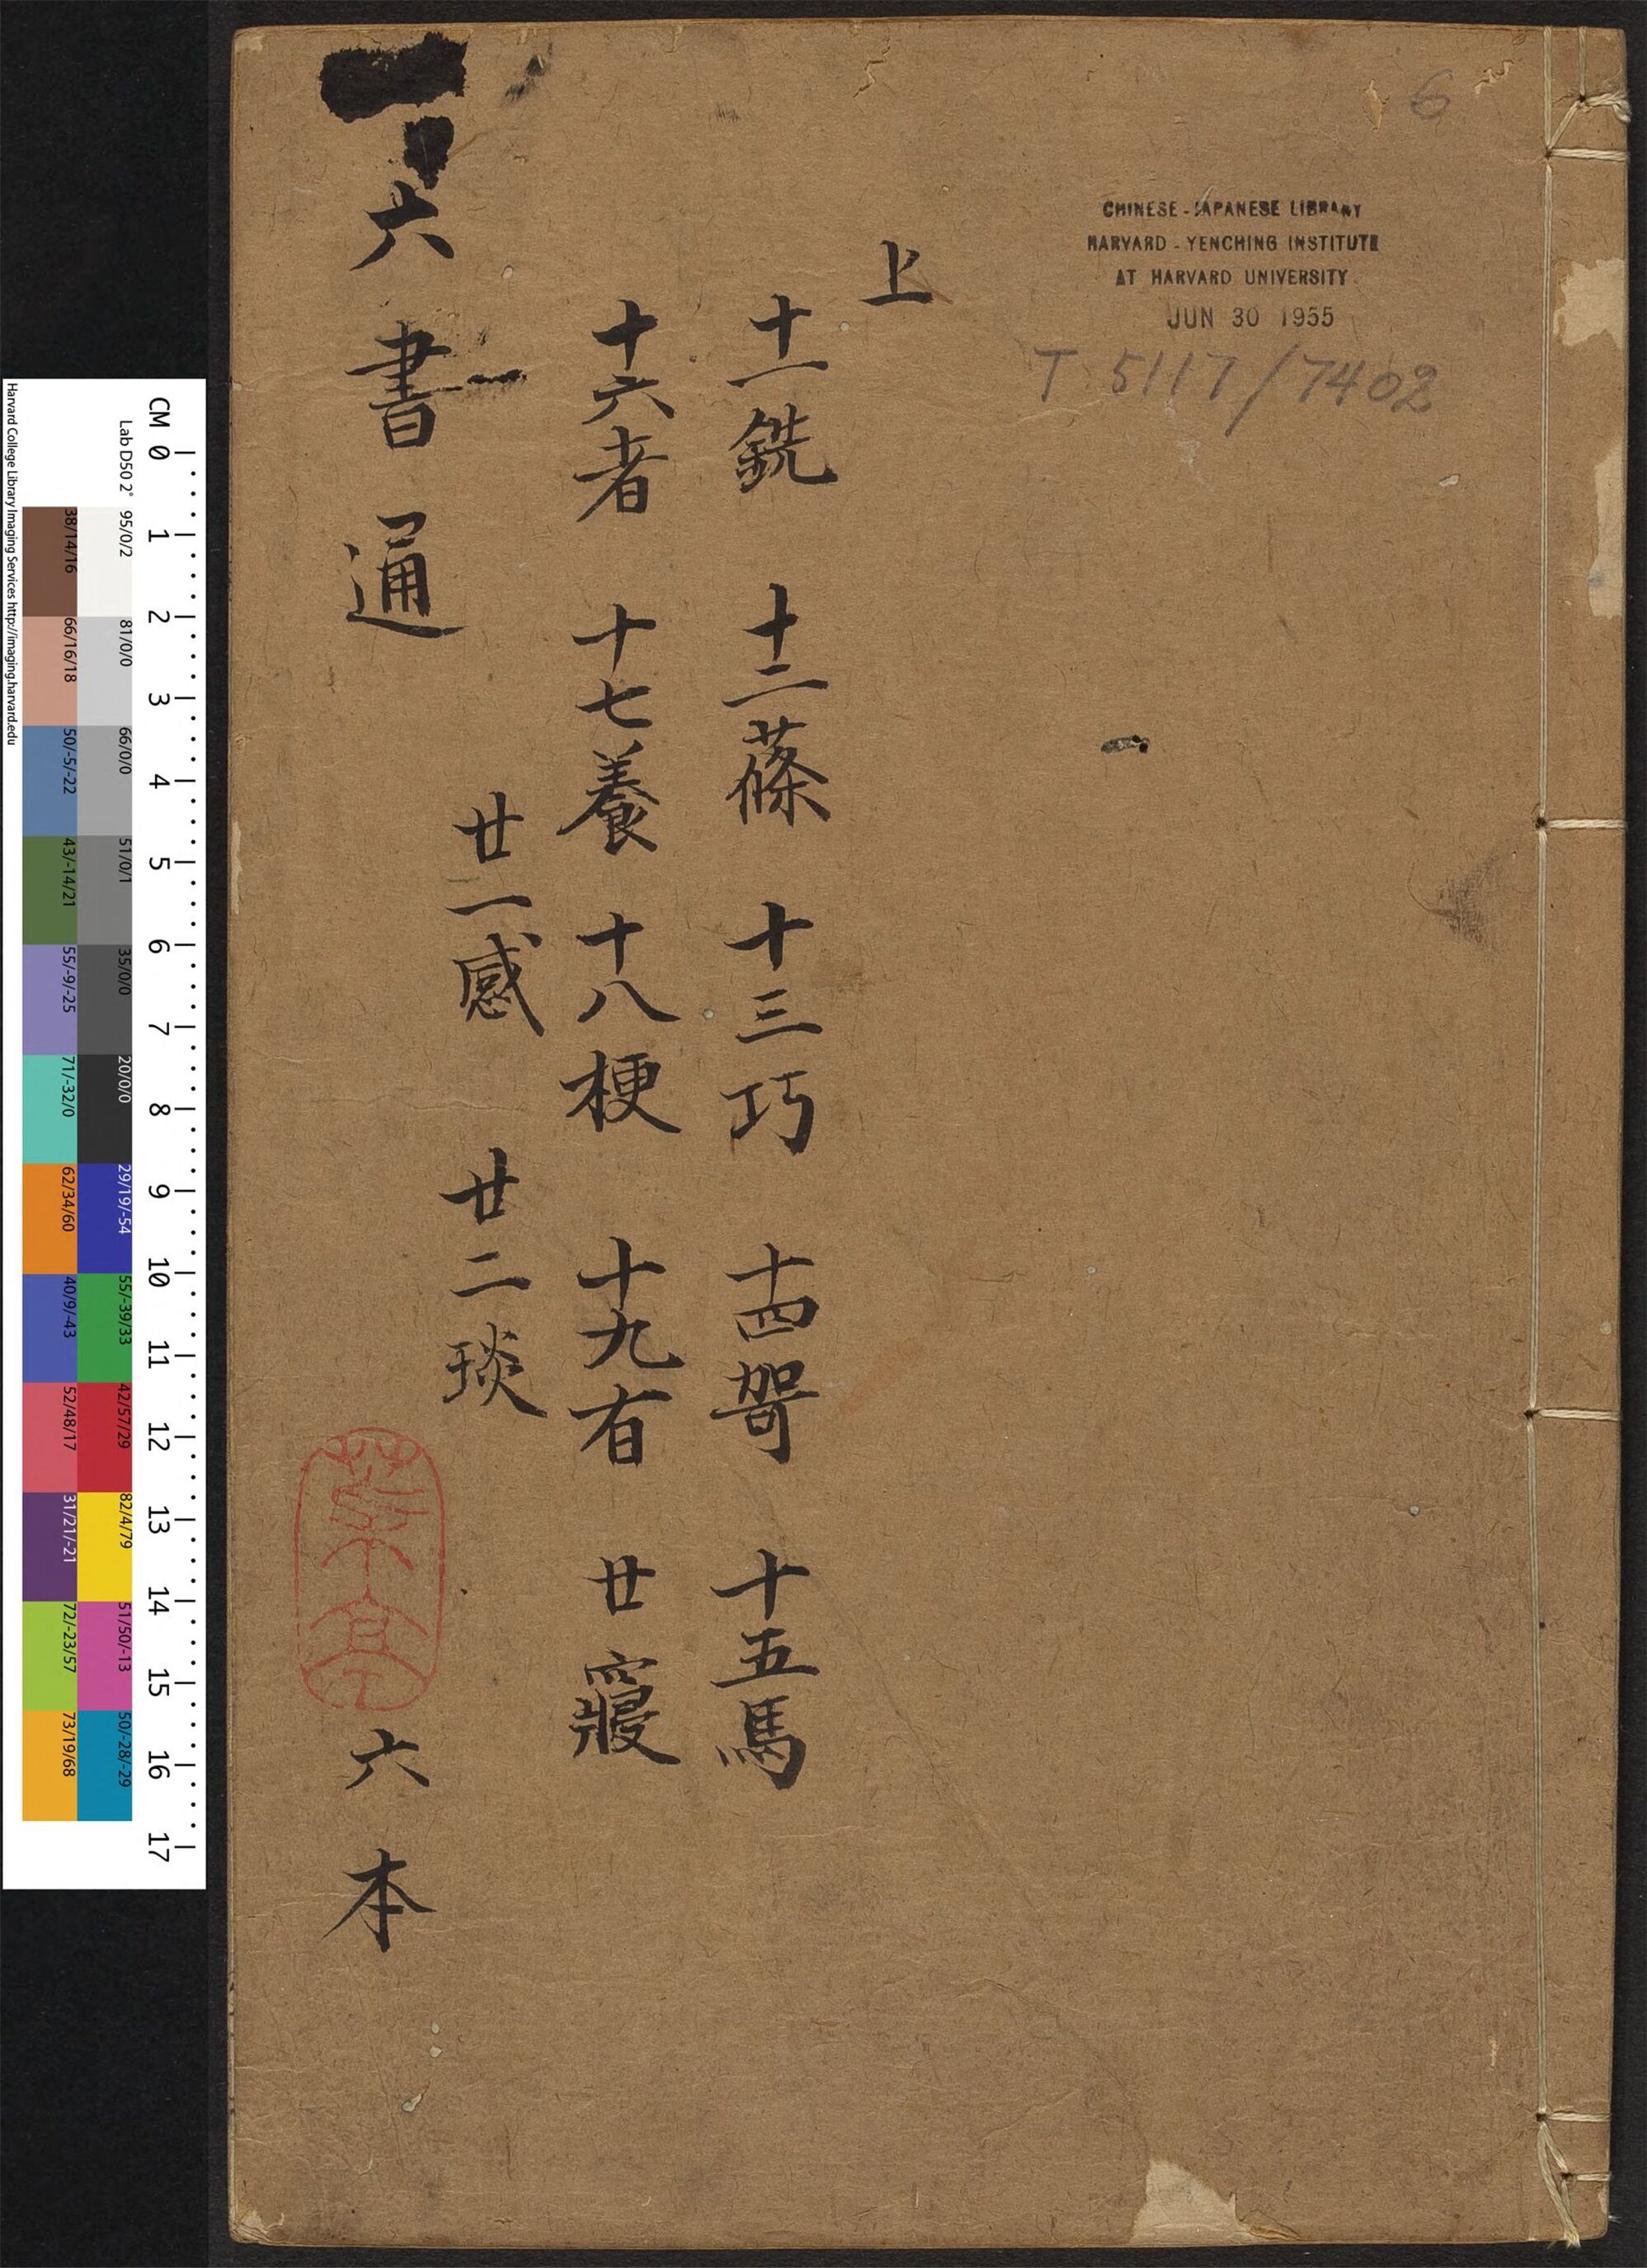 6
CHINESE-JAPANESE LIBRARY
HARVARD-YENCHING INSTITUTE
AT HARVARD UNIVERSITY
JUN 30 1955
T 5117/7402
上
十一銑 十二篠 十三巧 十四哿 十五馬
十六者 十七養 十八梗 十九有 廿寢
廿一感 廿二琰
六書通 六本
CM 0 1 2 3 4 5 6 7 8 9 10 11 12 13 14 15 16 17
Lab D50 2° 95/0/2 81/0/0 66/0/0 51/0/1 35/0/0 20/0/0 29/19/-54 55/-39/33 42/57/29 82/4/79 51/50/-13 50/-28/-29
38/14/16 66/16/18 50/-5/-22 43/-14/21 55/-9/-25 71/-32/0 62/34/60 40/9/-43 52/48/17 31/21/-21 72/-23/57 73/19/68
Harvard College Library Imaging Services http://imaging.harvard.edu